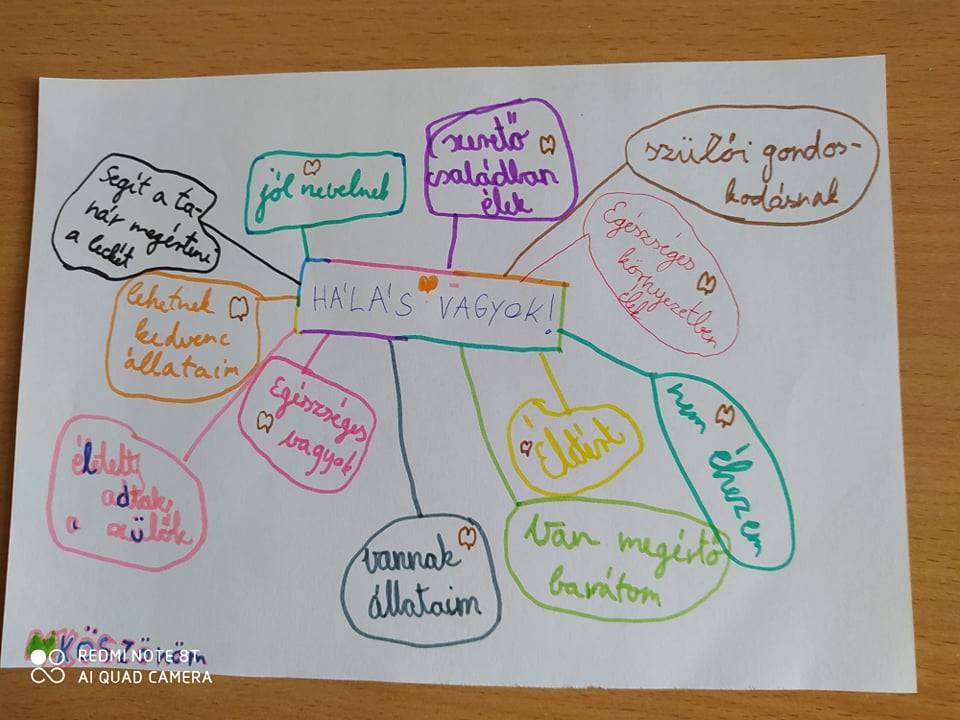 HÁLÁS VAGYOK!
Segít a ta-
nár megérteni
a leckét
jól nevelnek
szerető
családban
élek
szülői gondos-
kodásnak
Egészséges
környezetben
élek
lehetnek
kedvenc
állataim
Egészséges
vagyok
életet
adtak
a szülők
vannak
állataim
Van megértő
barátom
nem éhezem
KÖSZÖNÖM
REDMI NOTE 8T
AI QUAD CAMERA